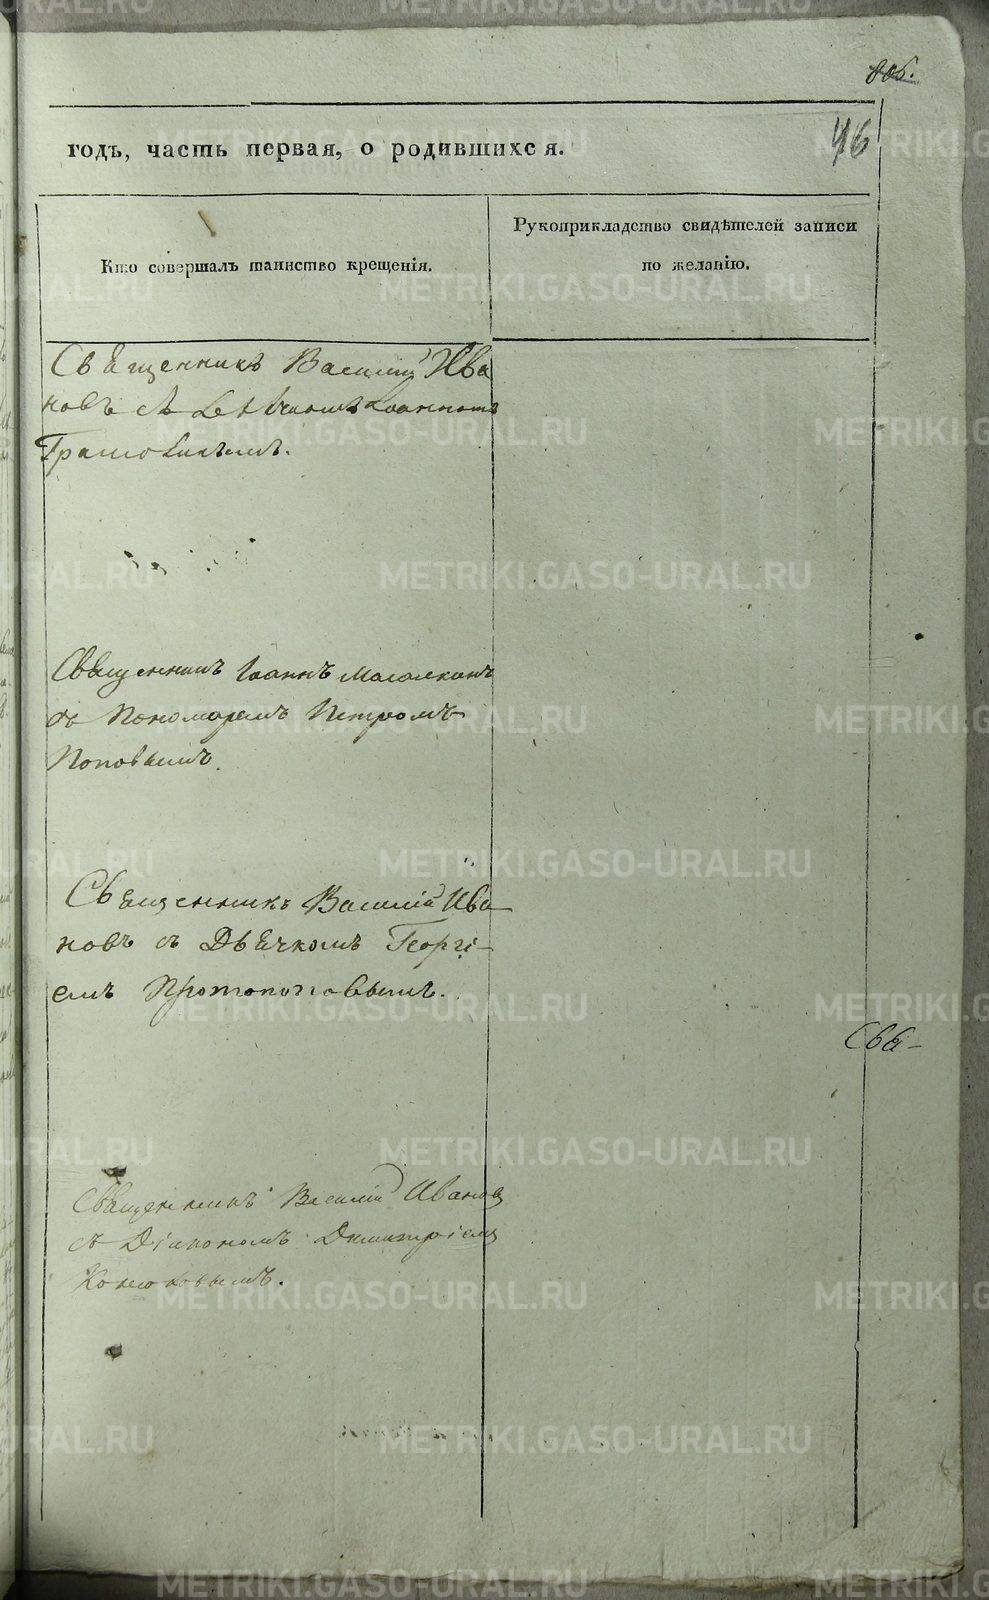 806.
46
годъ, часть первая, о родившихся.
Кто совершалъ таинство крещенія.
Рукоприкладство свидѣтелей записи
по желанію.
Священникъ Василий Ива
новъ съ Іоанномъ
Священникъ Іоаннъ
съ Пономаремъ Петромъ
Поповымъ.
Священникъ Василій Ива
новъ съ Дьячкомъ Георгі-
емъ Протопоповымъ.
Свя-
Священникъ Василій Иванов
съ Діакономъ Димитріемъ
Конюховымъ.
METRIKI.GASO-URAL.RU